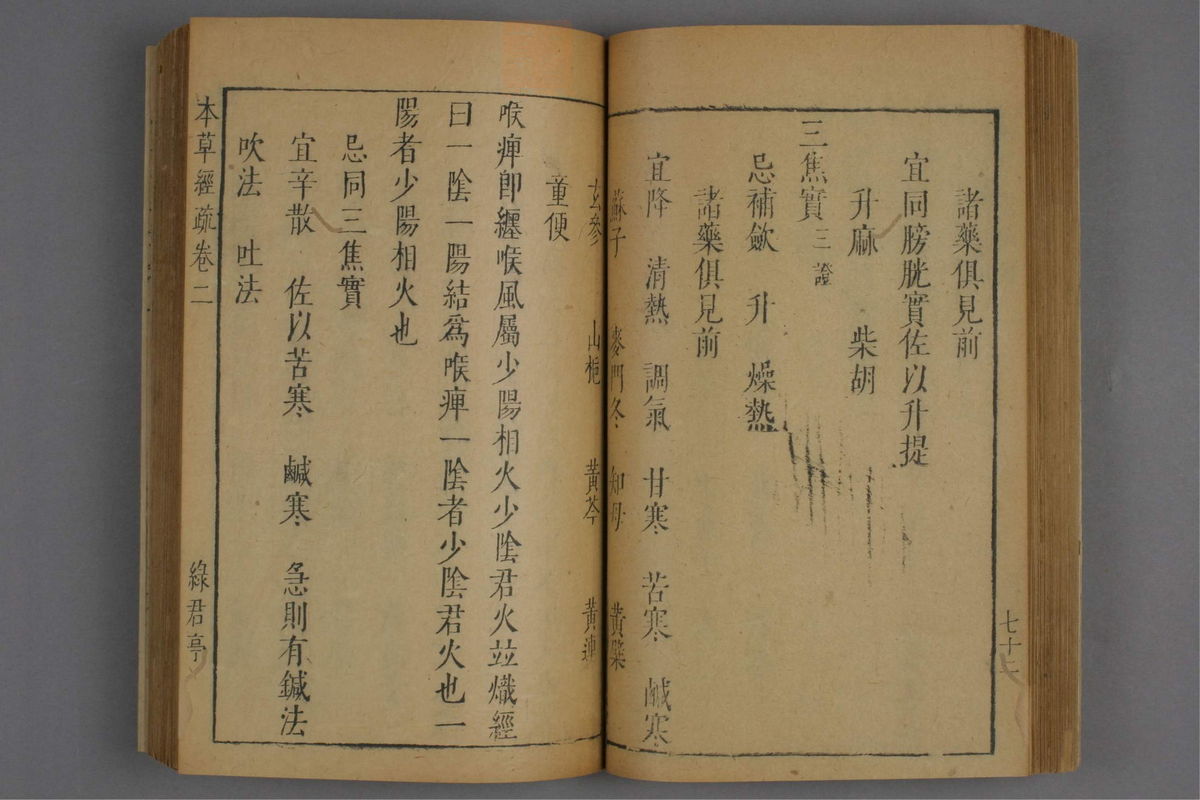 諸藥俱見前
宜同膀胱實佐以升提
升麻　柴胡
三焦實三證
忌補歛　升　燥熱
諸藥俱見前
宜降　清熱　調氣　甘寒　苦寒　鹹寒
蘇子　麥門冬　知母　黃檗
七十二
玄參　山梔　黃芩　黃連
童便
喉痺卽纏喉風屬少陽相火少陰君火竝熾經
曰一陰一陽結爲喉痺一陰者少陰君火也一
陽者少陽相火也
忌同三焦實
宜辛散　佐以苦寒　鹹寒　急則有鍼法
吹法　吐法
本草經疏卷二
綠君亭